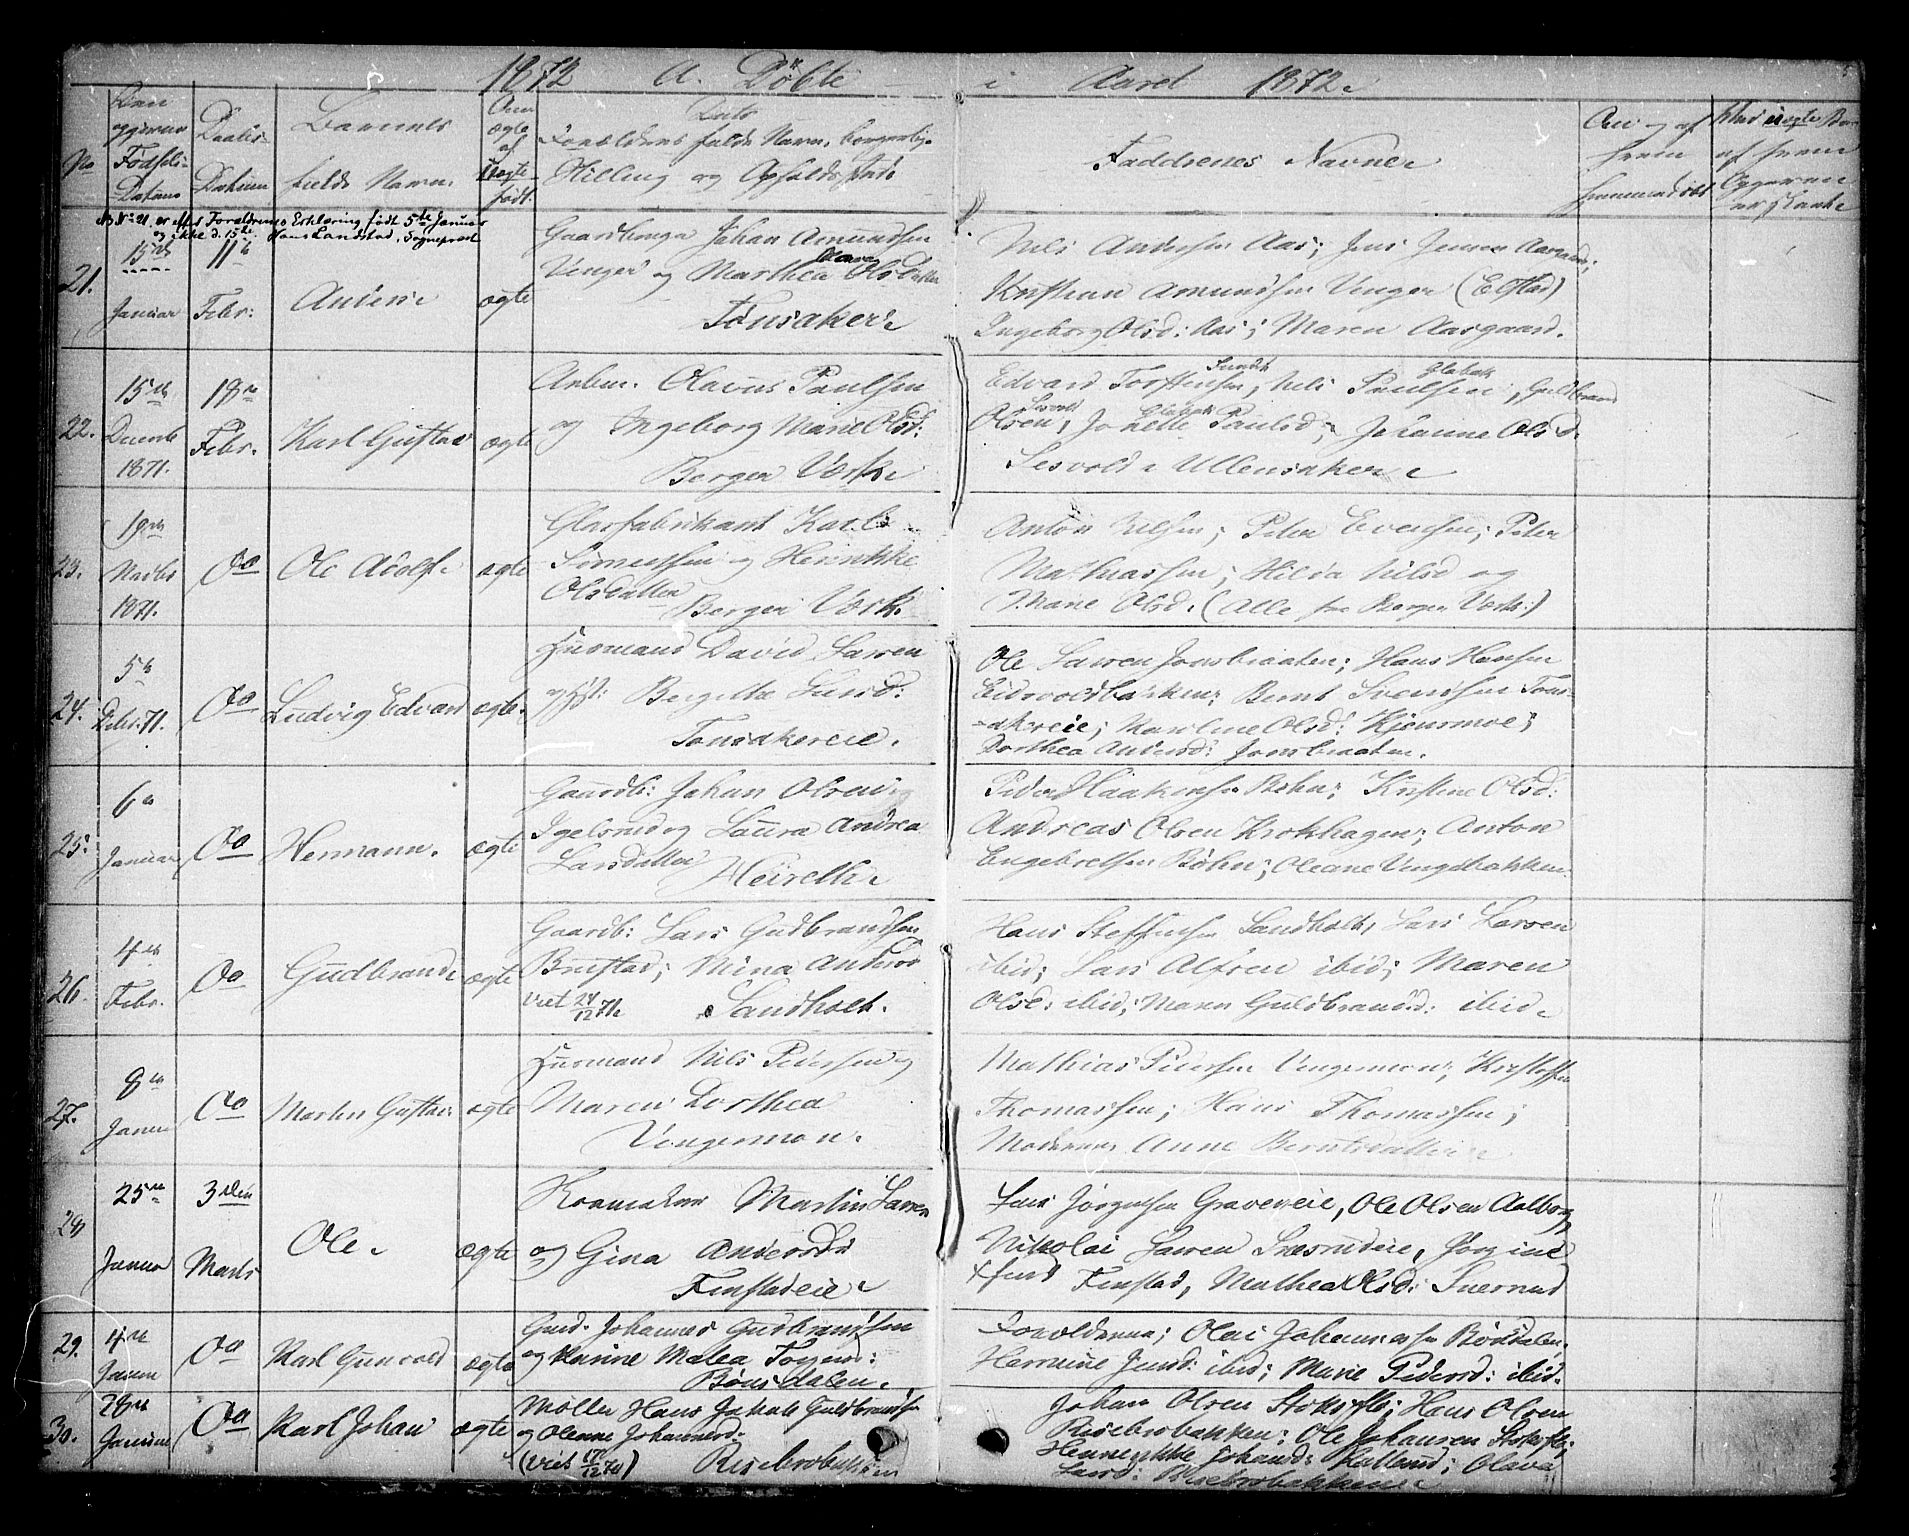 1872 A. Döbte i Aaret 1872.
No
Fødsels-
Datum
Daabs-
Datum
Barnets
fulde Navn.
Om
ægte
af
uægte
født.
Dito
Forældrenes fulde Navn, borgerlige
Stilling og Opholdssted
Faddrenes Navne
An og af
hvem
NB No 21. er efter Forældrenes Erklæring født 5te Januar
og ikke d. 15de. Hans Landstad, Sogneprest
21.
15de
Januar
11te
Febr:
Anders
ægte
Gaardbruger Johan Amundsen
Venger og Marthea Olsd
Tønsaker
Nils Andersen Aas; Jens Jensen
Kristian Amundsen Venger (Elstad)
Ingeborg Olsd: Aas; Maren Aasgaard.
22.
15de
Decemb
1871.
18de
Febr.
Karl Gustav
ægte
Arbm. Olavus Paulsen
og Ingeborg Marie Olsd:
Berger Værk
Edvard Torstensen, Nils Paulsen, Guldbrand
Olsen, Jonette Paulsd; Johanne Olsd.
Sesvold Ullensaker
23.
19de
Novbr
1871.
Do
Ole Adolf
ægte
Glasfabrikant Karl
og Henrikke
Olsdatter
Berger Værk.
Anton Nilsen; Peter Evensen; Peter
Mathiassen; Hilda Nilsd og
Marie Olsd. (Alle fra Berger Værk:)
24.
5te
Debr. 71.
Do
Ludvig Edvard
ægte.
Husmand David Larsen
Bergitte Larsd:
Tonsakereie.
Ole Larsen Jonsbraaten; Hans Hansen
Eidsvoldbakken; Bernt Svendsen Tons-
akereie; Karoline Olsd: Kjensmoe;
Dorthea Andersd: Jonsbraaten.
25.
6te
Januar
Do
Hermann.
ægte
Gaardb: Johan Olsen
og Laura Andrea
Larsdatter
Peder Haakensen Bøhn; Kristine Olsd:
Andreas Olsen Krokhagen; Anton
Engebretsen Bøhn; Oleane Vengsbakken.
26.
4de
Febr.
Do
Gudbrand
ægte
Gaardb: Lars Gudbrandsen
Mina Andersd
Viet 24/12 71.
Sandholt.
Hans Steffensen Sandholt, Lars Larsen
ibid; Lars Alfsen ibid; Maren
Olsd: ibid; Maren Guldbrandsd: ibid.
27.
8de
Januar
Do
Martin Gustav
ægte
Husmand Nils Pedersen og
Maren Dorthea
Vengermoen.
Mathias Pedersen Vengermoen; Kristoffer
Thomassen; Hans Thomassen;
Moderen Anne Berntsdatter
28
25de
Januar
3die
Marts
Ole.
ægte
Martin Larsen
og Gina Andersd:
Finstadeie.
Lars Jørgensen Graveveie, Ole Olsen Aalborg
Nikolai Larsen Jørgine
Finstad, Mathea Olsd:
29.
4de
Januar
Do
Karl Gunvald
ægte
Gmd. Johannes Gudbrandsen
og Karine Malea
Bønsdalen.
Forældrene; Olai Johannessen Bønsdalen
Hermine Jensd: ibid; Marie Pedersd: ibid.
30.
28de
Januar
Do
Karl Johan
ægte
Møller Hans Jakob Guldbrandsen
og Oleane Johannesd:
(viet 17/12 70)
Risebrobakken
Johan Olsen; Hans Olsen
Risebrobakken; Ole Johansen
Hennrikke Johansd: Rutland; Olava
Larsd: Risebrobakken